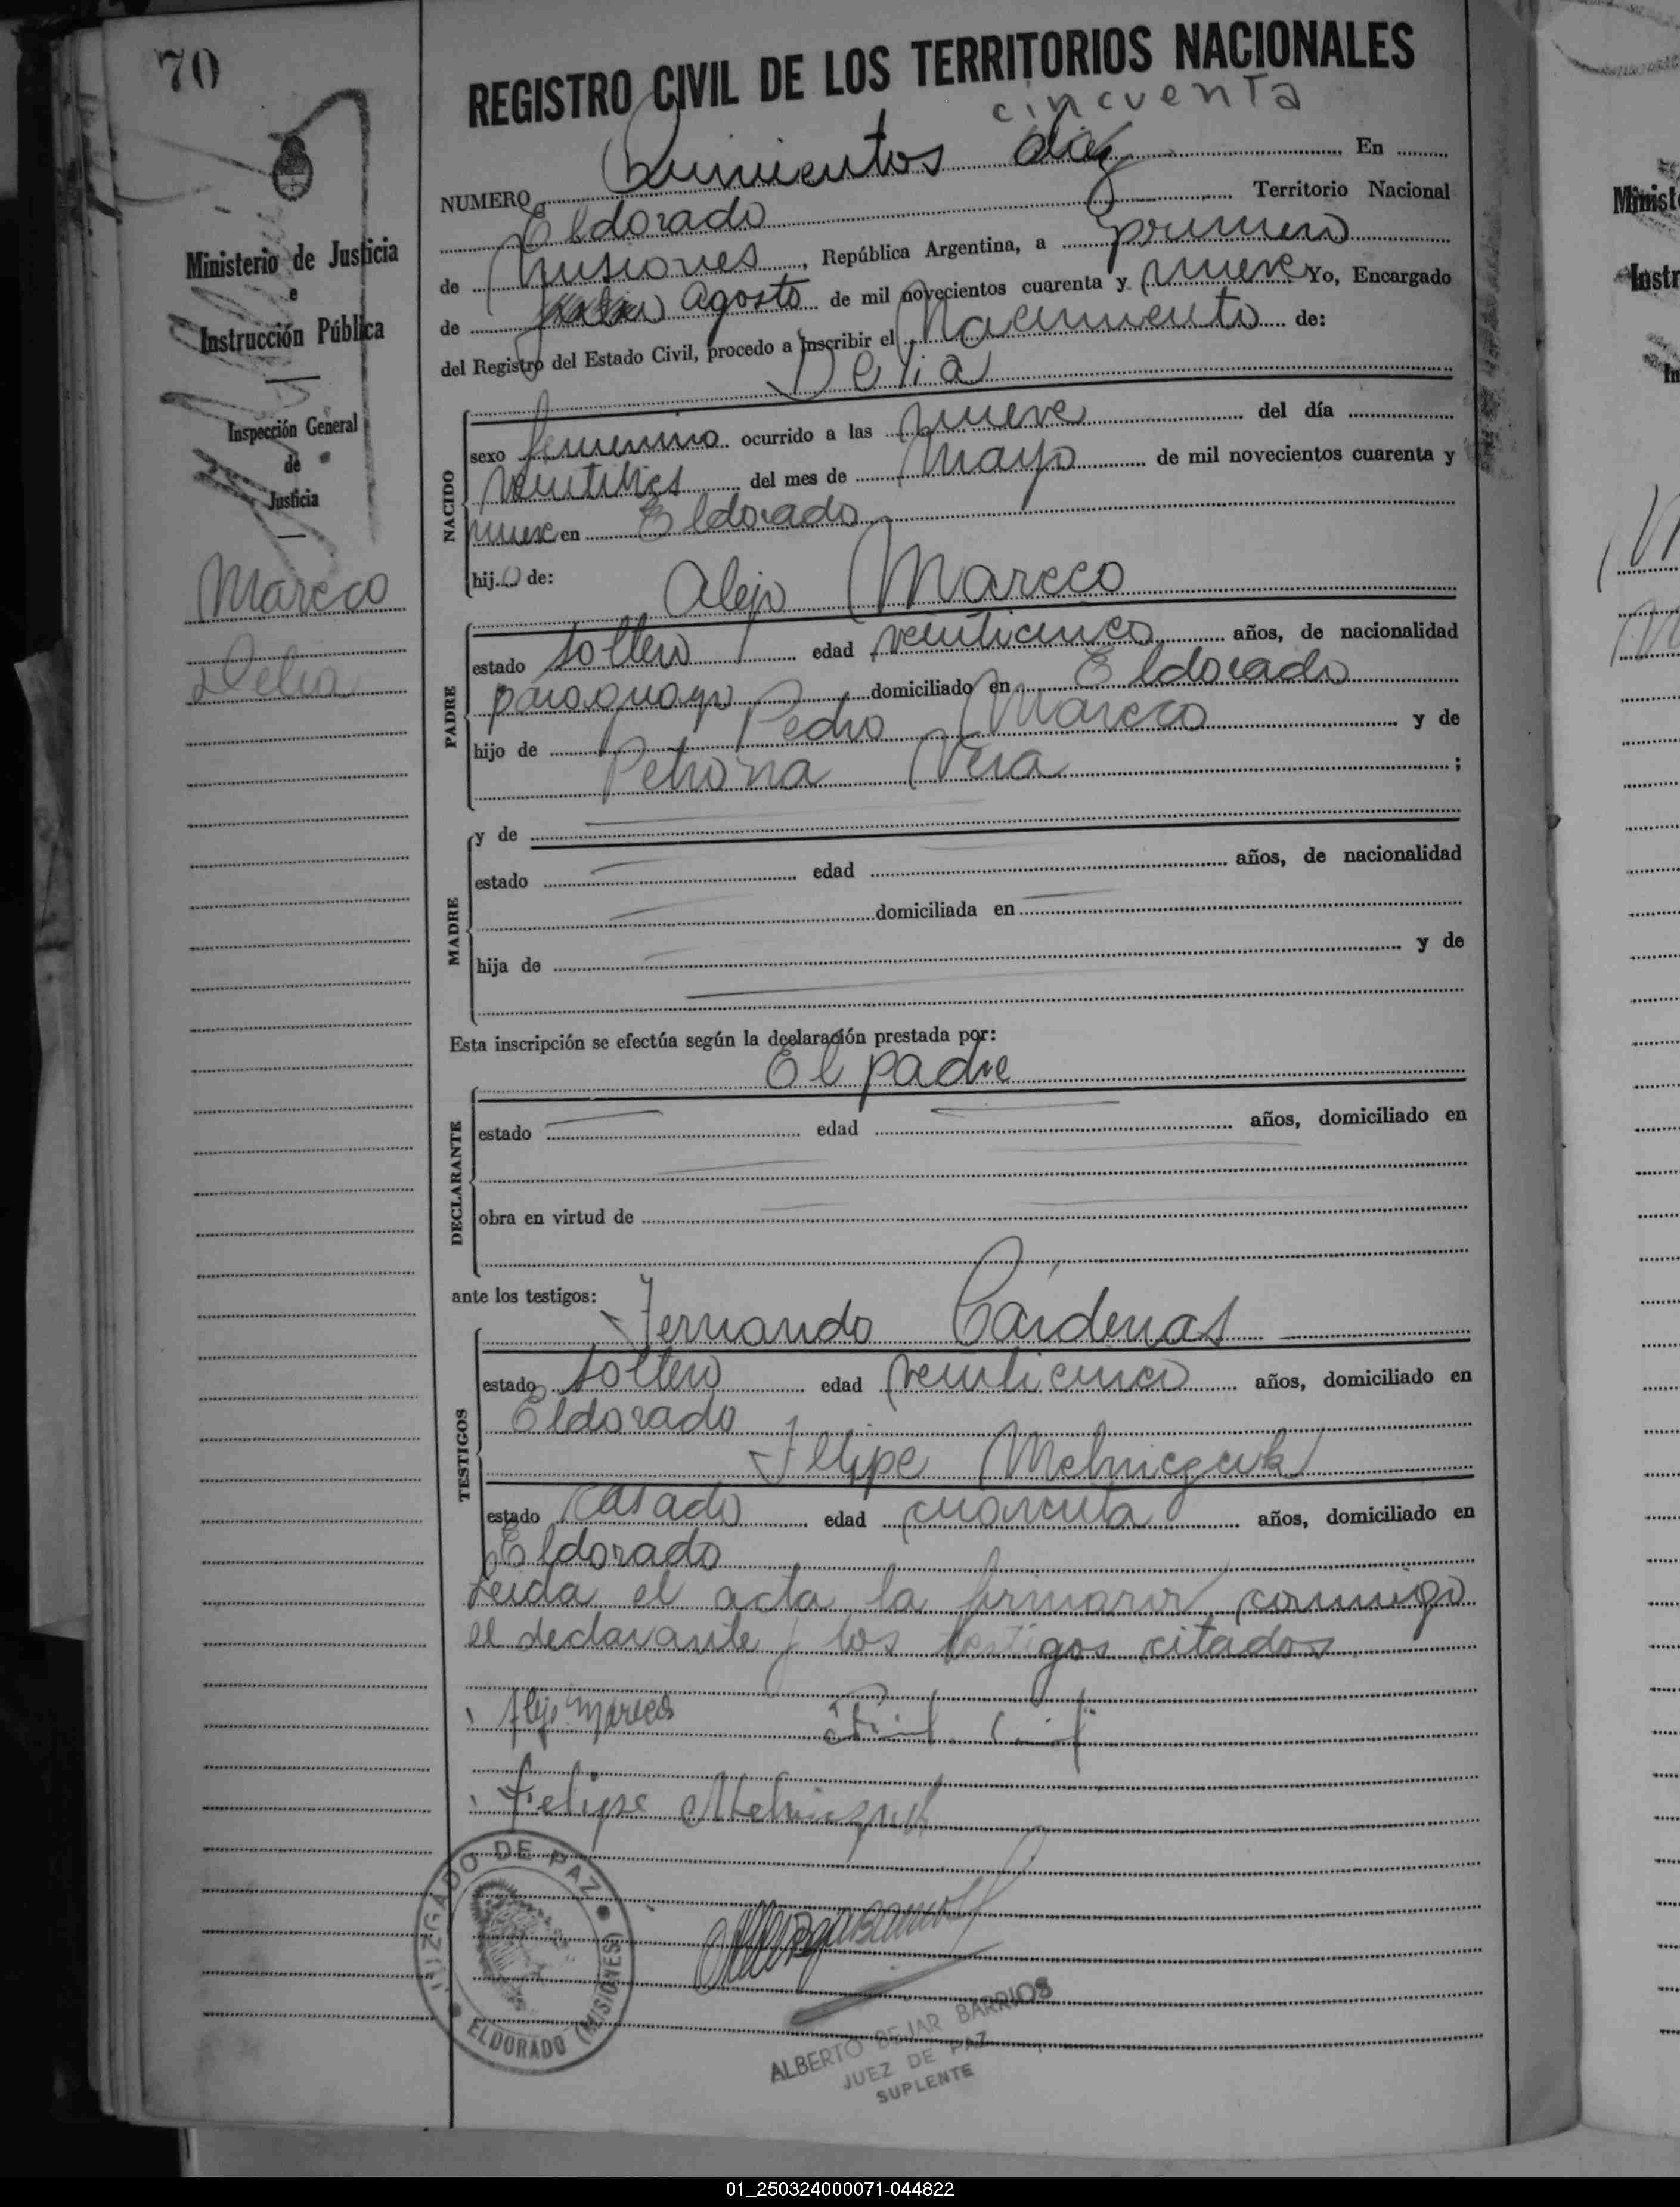 70
REGISTRO CIVIL DE LOS TERRITORIOS NACIONALES
cincuenta
NUMERO Quinientos diez En
Eldorado Territorio Nacional
de Misiones, República Argentina, a primero
de julio agosto de mil novecientos cuarenta y nueve Yo, Encargado
del Registro del Estado Civil, procedo a inscribir el Nacimiento de:
Delia
Ministerio de Justicia
e
Instrucción Pública
Inspección General
de
Justicia
Mareco
Delia
NACIDO
sexo femenino ocurrido a las nueve del día
veintitres del mes de Mayo de mil novecientos cuarenta y
nueve en Eldorado
hij de:
Alejo Mareco
PADRE
estado soltero edad veinticinco años, de nacionalidad
paraguayo domiciliado en Eldorado
hijo de Pedro Mareco y de
Petrona Vera ;
MADRE
y de
estado edad años, de nacionalidad
domiciliada en
hija de y de
Esta inscripción se efectúa según la declaración prestada por:
El padre
DECLARANTE
estado edad años, domiciliado en
obra en virtud de
ante los testigos:
Fernando Cárdenas
TESTIGOS
estado soltero edad veinticinco años, domiciliado en
Eldorado
Felipe Melniczuk
estado casado edad cuarenta años, domiciliado en
Eldorado
Leida el acta la firmaron conmigo
el declarante y los testigos citados
Alejo Mareco
Felipe Melniczuk
JUZGADO DE PAZ
ELDORADO (MISIONES)
ALBERTO BEJAR BARRIOS
JUEZ DE PAZ
SUPLENTE
Minist
Instr
In
01_250324000071-044822